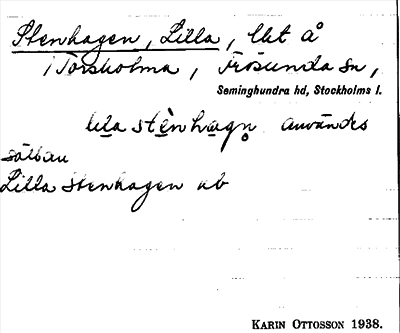 Stenhagen, Lilla, lht å
i Torsholma, Frösunda sn,
Seminghundra hd, Stockholms l.
lila stènhagn användes
sällan
Lilla Stenhagen ub
KARIN OTTOSSON 1938.